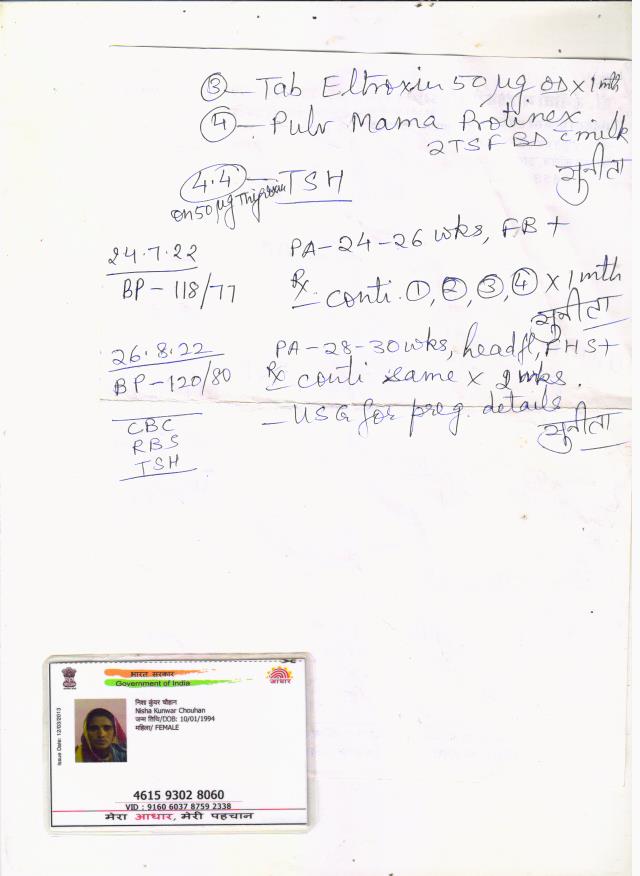 ③ — Tab Eltroxin 50 µg OD x 1 mth
④ — Pulv Mama Protinex.
2TSF BD c̄ milk
सुनीता
4.4 — TSH
on 50 µg
24.7.22 PA-24-26 wks, FB +
BP - 118/77 Rx conti. ①, ②, ③, ④ x 1 mth
सुनीता
26.8.22 PA-28-30 wks, head fl, FHS+
BP-120/80 Rx conti same x 2 wks.
— USG for preg. details
सुनीता
CBC
RBS
TSH
भारत सरकार
Government of India
आधार
Issue Date: 12/03/2013
निशा कुंवर चौहान
Nisha Kunwar Chouhan
जन्म तिथि/DOB: 10/01/1994
महिला/ FEMALE
4615 9302 8060
VID : 9160 6037 8759 2338
मेरा आधार, मेरी पहचान